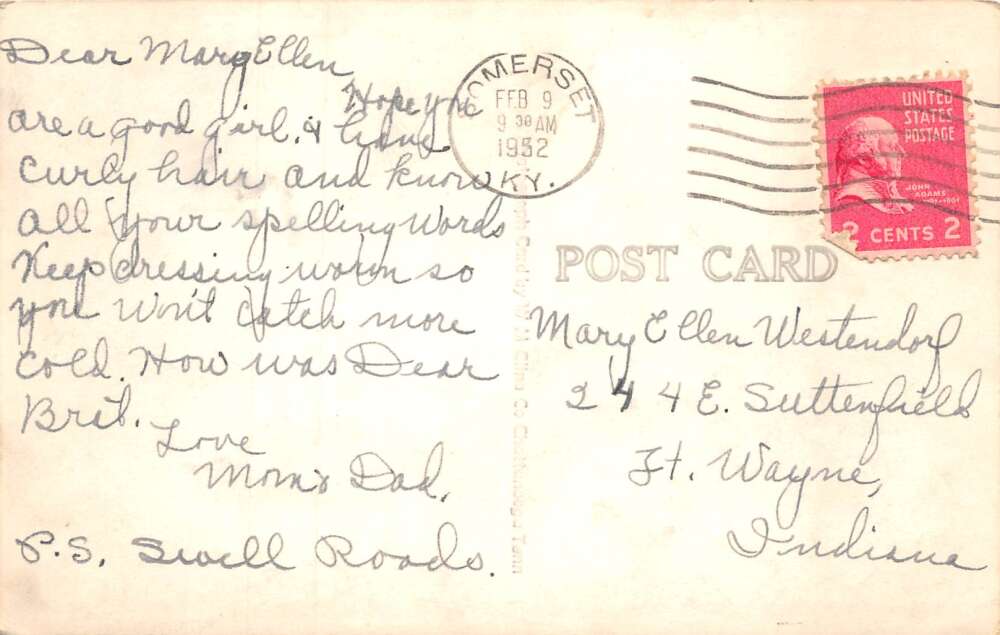 Dear Mary Ellen
Hope you
are a good girl. & have
Curly hair and know
all your spelling Words
Keep dressing warm so
you Won't catch more
cold. How was Dear
Brit.
Love
Mom & Dad.
P.S. Swell Roads.
SOMERSET
FEB 9
9 30 AM
1952
KY.
UNITED
STATES
POSTAGE
JOHN
ADAMS
2 CENTS 2
POST CARD
Mary Ellen Westendorf
244 E. Suttenfield
Ft. Wayne,
Indiana